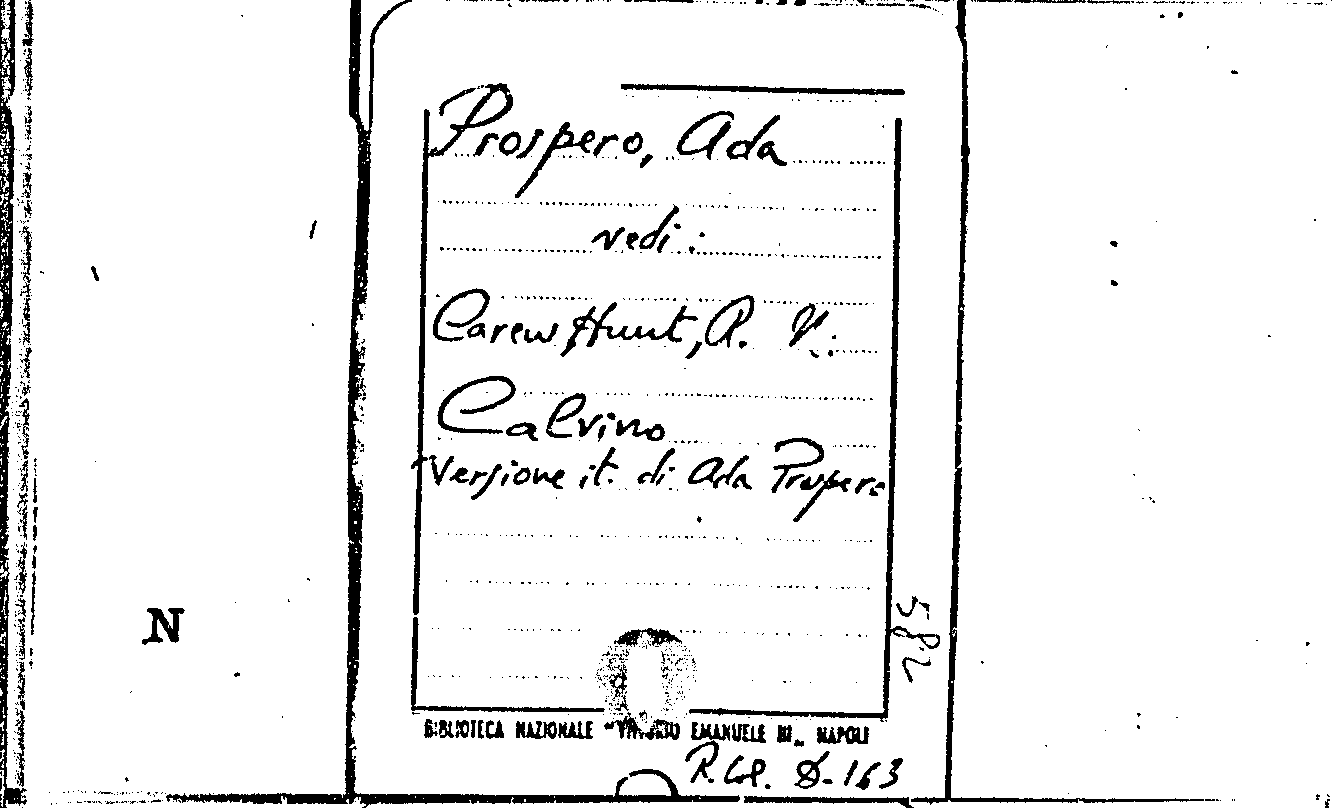 Prospero, Ada
vedi:
Carew Hunt, R. N.:
Calvino
Versione it. di Ada Prospero
582
N
BIBLIOTECA NAZIONALE "VITTORIO EMANUELE III" NAPOLI
R. Col. 8-163